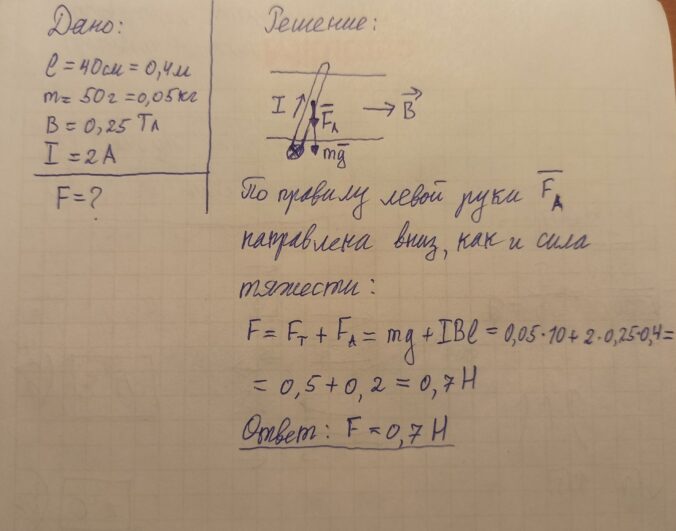 Дано:
l = 40 см = 0,4 м
m = 50 г = 0,05 кг
B = 0,25 Тл
I = 2 А
F = ?
Решение:
I
F̅А
B⃗
mg̅
По правилу левой руки F̅А
направлена вниз, как и сила
тяжести:
F = FТ + FА = mg + IBl = 0,05·10 + 2·0,25·0,4 =
= 0,5 + 0,2 = 0,7 Н
Ответ: F = 0,7 Н